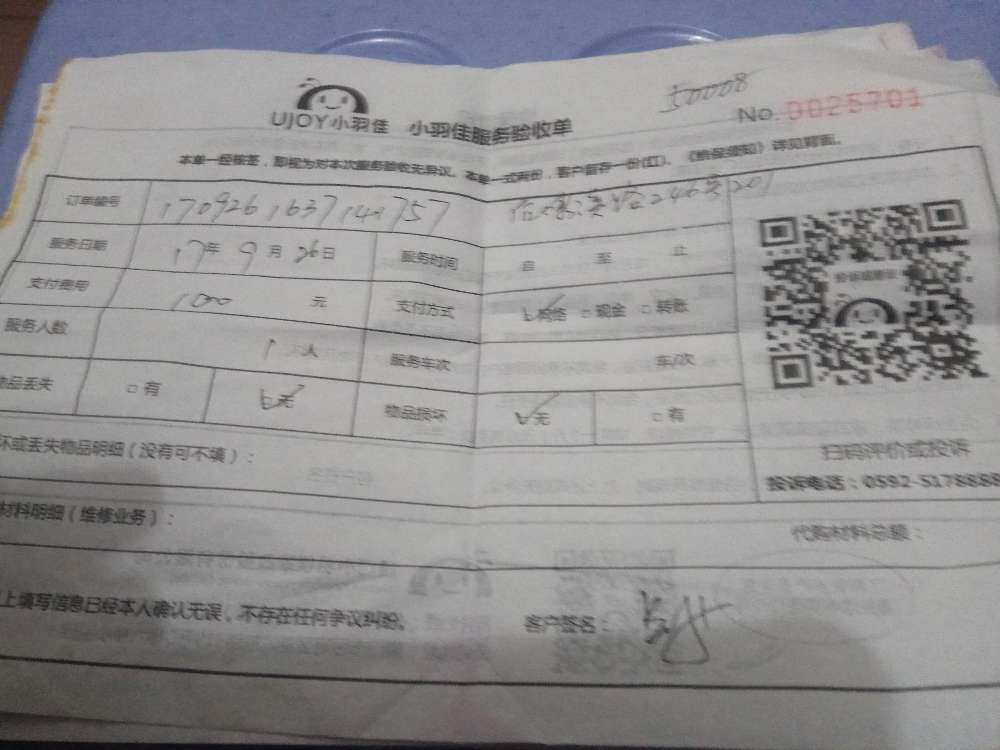 50008
No. 0025701
UJOY小羽佳 小羽佳服务验收单
本单一经核签，即视为对本次服务验收无异议。本单一式两份，客户留存一份(红)。《验保须知》详见背面。
订单编号 170926163714757 246号201
服务日期 17年9月26日 服务时间 自 至 止
支付费用 1000 元 支付方式 网络 □ 现金 □ 转账
服务人数 1人 服务车次 车/次
物品丢失 □ 有 无 物品损坏 无 □ 有
坏或丢失物品明细（没有可不填）：
扫码评价或投诉
投诉电话：0592-5178888
材料明细（维修业务）： 代购材料总额：
上填写信息已经本人确认无误，不存在任何争议纠纷。 客户签名：